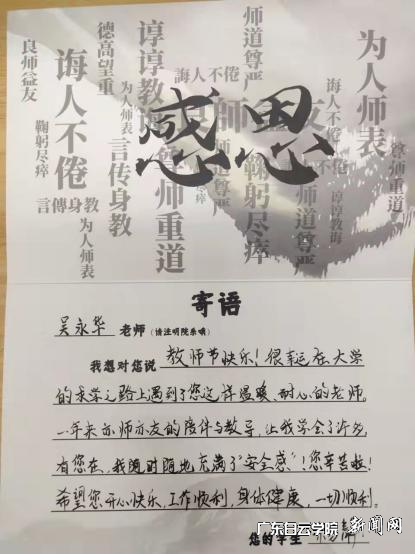 良师益友
德高望重
谆谆教
师道尊严
为人师表
诲人不倦
鞠躬尽瘁
言傳身教
为人师表
为人师表
言传身教
誨人不倦
师道尊严
鞠躬尽瘁
诲人不倦
谆谆教诲
尊师重道
感恩
寄语
吴永华 老师(请注明院系哦)
我想对您说 教师节快乐!很幸运在大学
的求学之路上遇到了您这样温暖、耐心的老师。
一年来亦师亦友的陪伴与教导,让我学会了许多,
有您在,我随时随地充满了"安全感"!您辛苦啦!
希望您开心快乐,工作顺利,身体健康,一切顺利。
您的学生
广东白云学院 新闻网